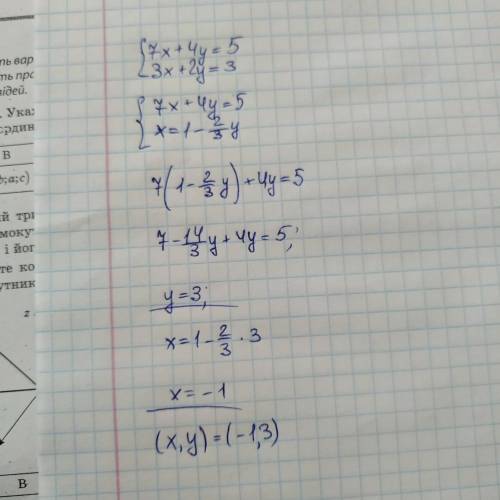 ть вар
ть про
відей.
. Ука
рдин
В
b;а;с)
ий три
мокут
і йог
те ко
утник
z
В
{7x+4y=5
3x+2y=3
{7x+4y=5
x=1-2/3y
7(1-2/3y)+4y=5
7-14/3y+4y=5;
y=3;
x=1-2/3·3
x=-1
(x,y)=(-1,3)